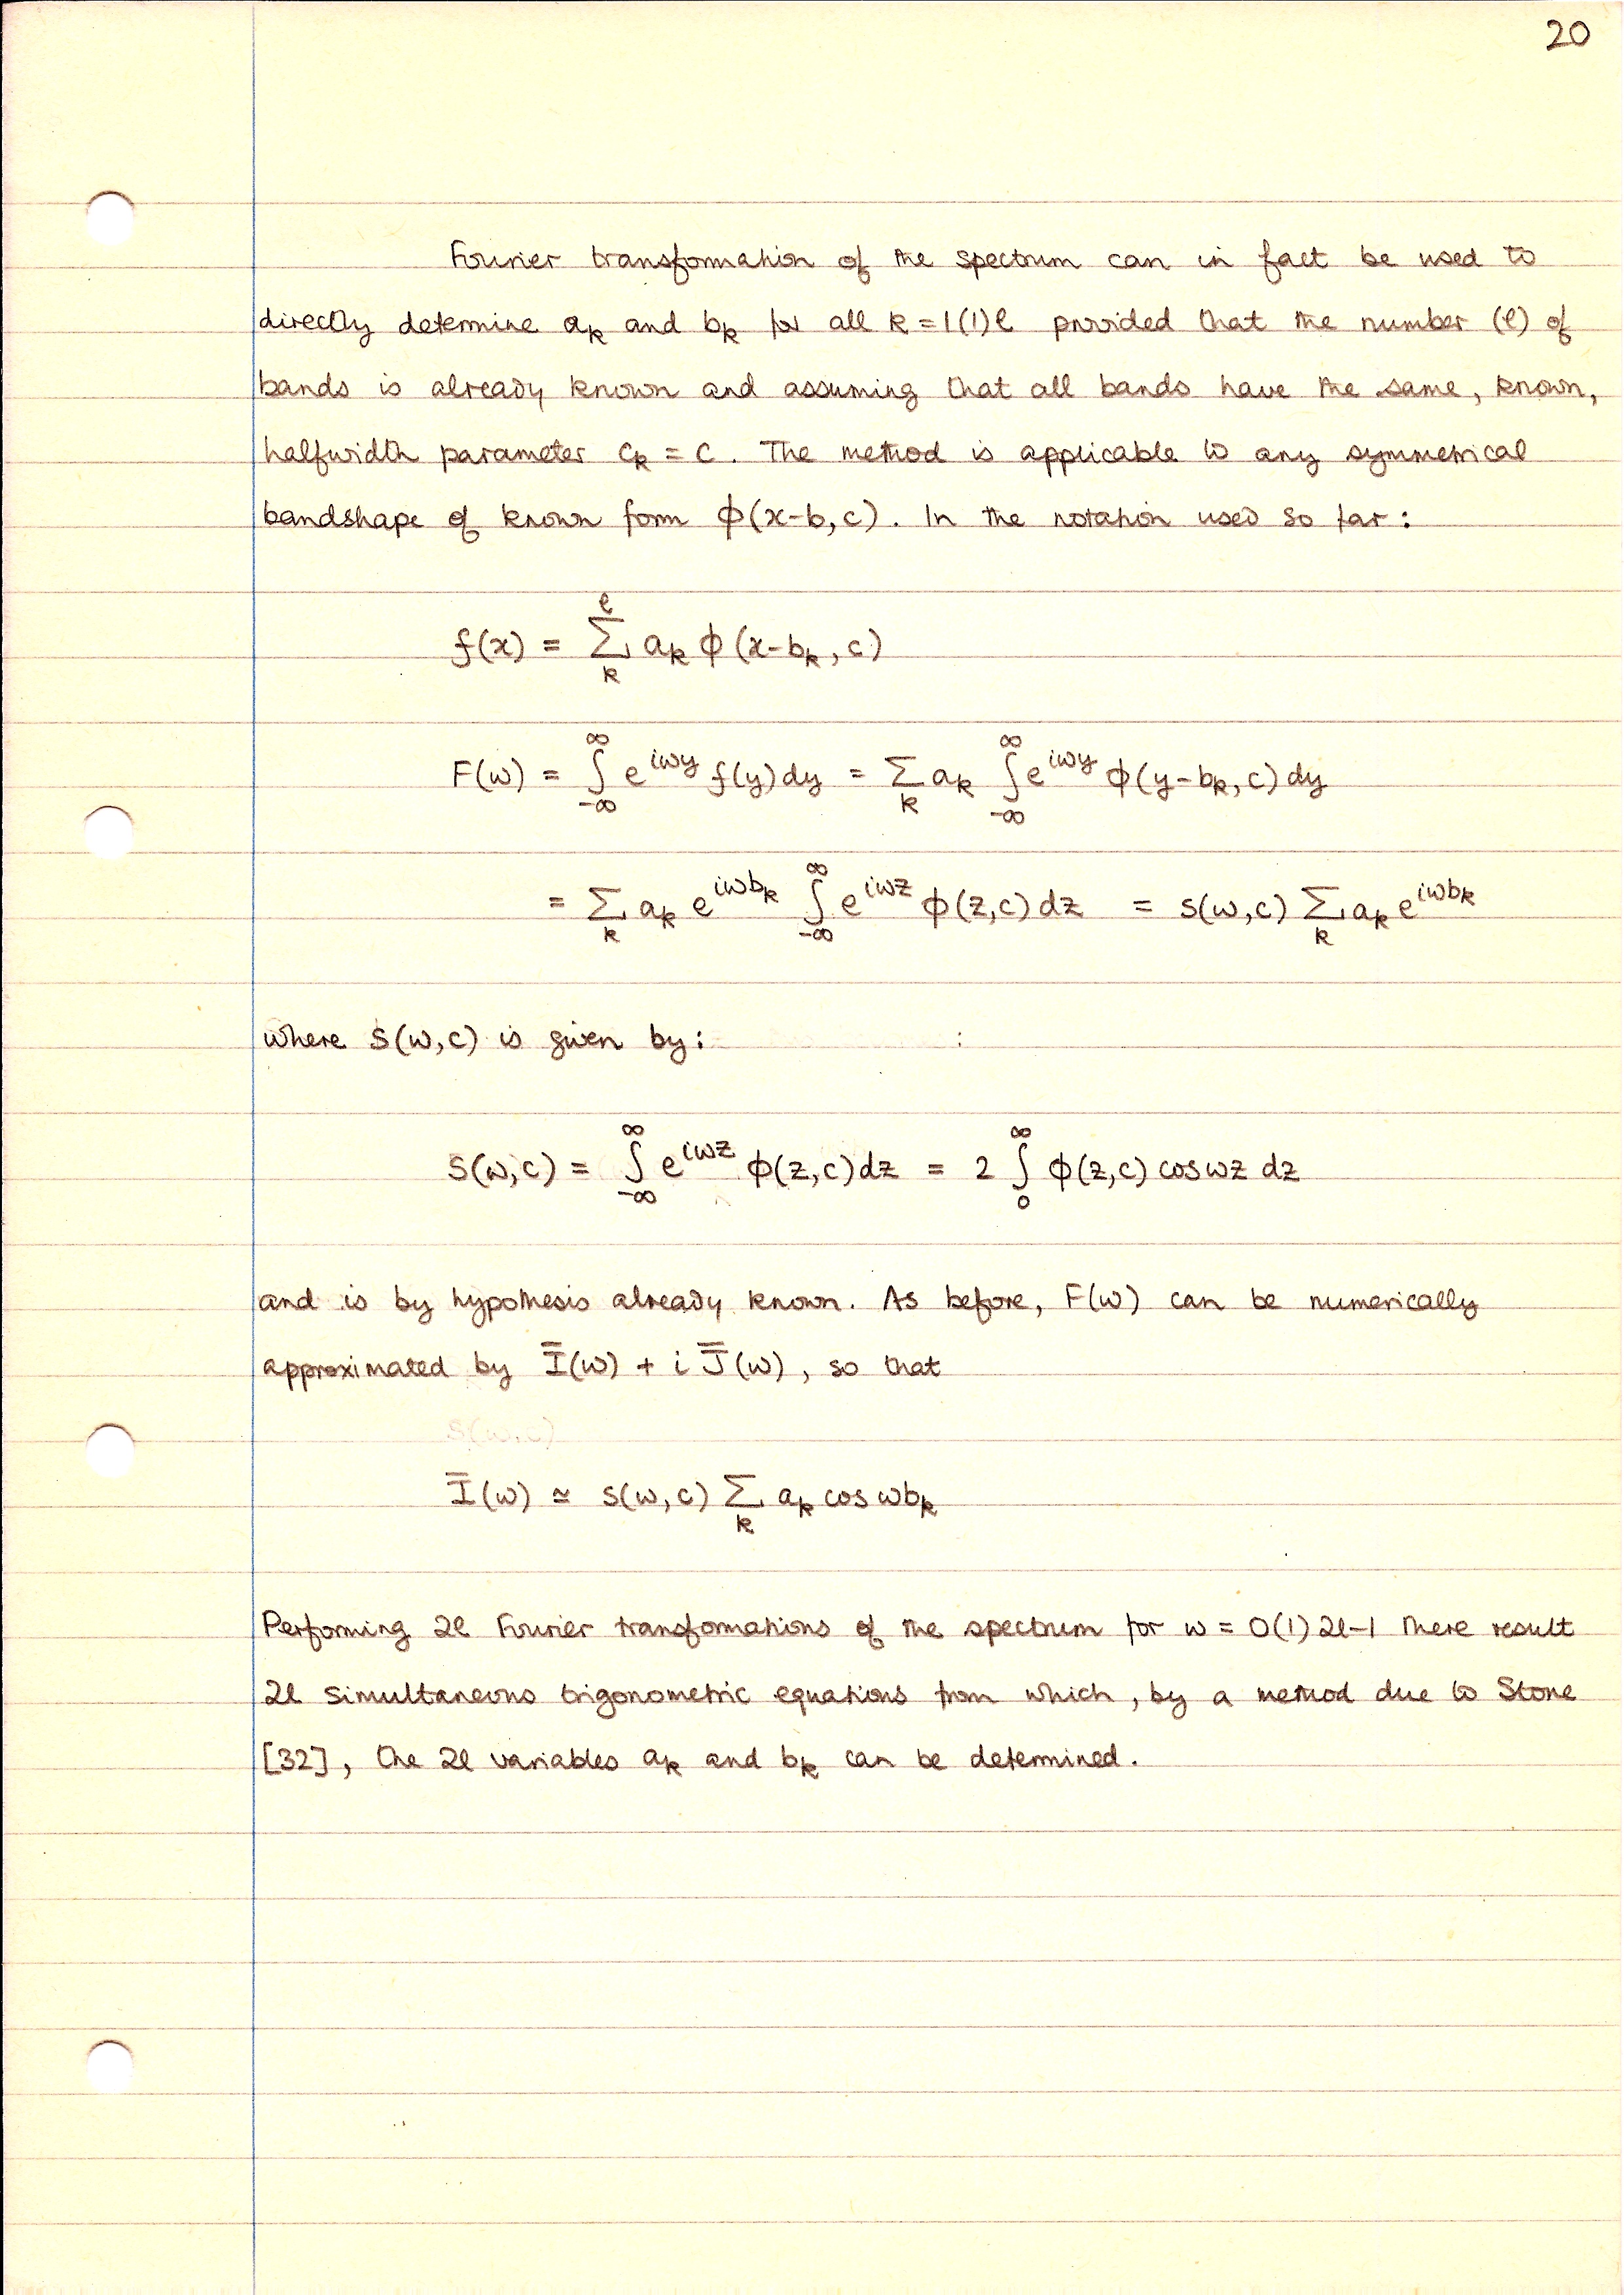 20
Fourier transformation of the spectrum can in fact be used to
directly determine aₖ and bₖ for all k = 1(1)ℓ provided that the number (ℓ) of
bands is already known and assuming that all bands have the same, known,
halfwidth parameter cₖ = c. The method is applicable to any symmetrical
bandshape of known form ϕ(x-b, c). In the notation used so far:
f(x) = ∑ₖ^ℓ aₖ ϕ(x-bₖ, c)
F(ω) = ∫_{-∞}^{∞} e^{iωy} f(y) dy = ∑ₖ aₖ ∫_{-∞}^{∞} e^{iωy} ϕ(y-bₖ, c) dy
= ∑ₖ aₖ e^{iωbₖ} ∫_{-∞}^{∞} e^{iωz} ϕ(z,c) dz = S(ω,c) ∑ₖ aₖ e^{iωbₖ}
where S(ω,c) is given by: :
S(ω,c) = ∫_{-∞}^{∞} e^{iωz} ϕ(z,c) dz = 2 ∫_{0}^{∞} ϕ(z,c) cos ωz dz
and is by hypothesis already known. As before, F(ω) can be numerically
approximated by I̿(ω) + i J̿(ω), so that
S(ω,c)
I̅(ω) ≃ S(ω,c) ∑ₖ aₖ cos ωbₖ
Performing 2ℓ Fourier transformations of the spectrum for ω = 0(1)2ℓ-1 there result
2ℓ simultaneous trigonometric equations from which, by a method due to Stone
[32], the 2ℓ variables aₖ and bₖ can be determined.